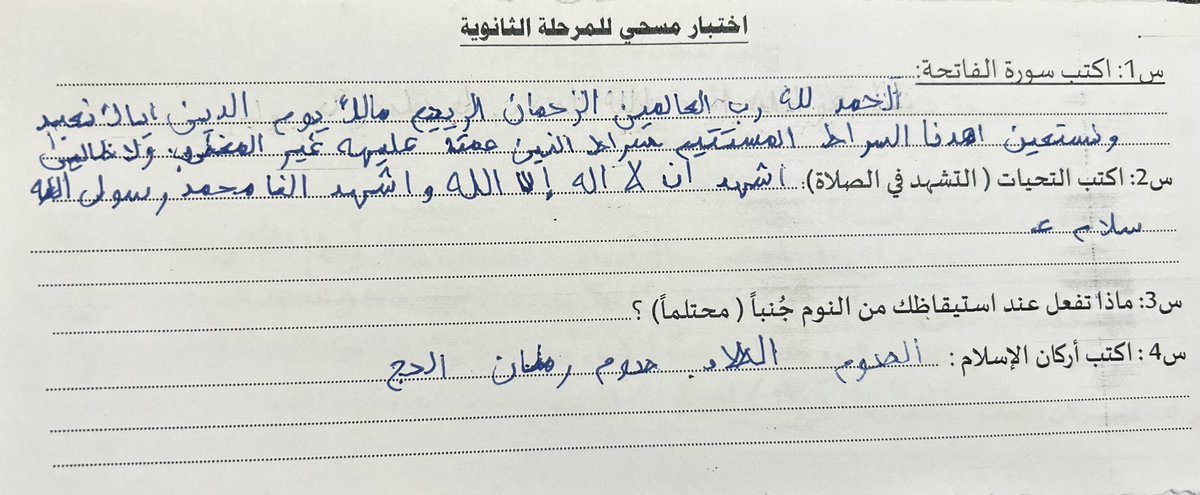 اختبار مسحي للمرحلة الثانوية
س1: اكتب سورة الفاتحة:
الحمد لله رب العالمين الرحمان الرحيم مالك يوم الدين اياك نعبد
ونستعين اهدنا السراط المستتيم سراط الذين عليهه غير المغضوب ولا ظالين
س2: اكتب التحيات ( التشهد في الصلاة): اشهد ان لا اله إلا الله و اشهد انما محمد رسول الله
سلام
س3: ماذا تفعل عند استيقاظك من النوم جُنباً ( محتلماً) ؟
س4 : اكتب أركان الإسلام : الصوم صوم الحج